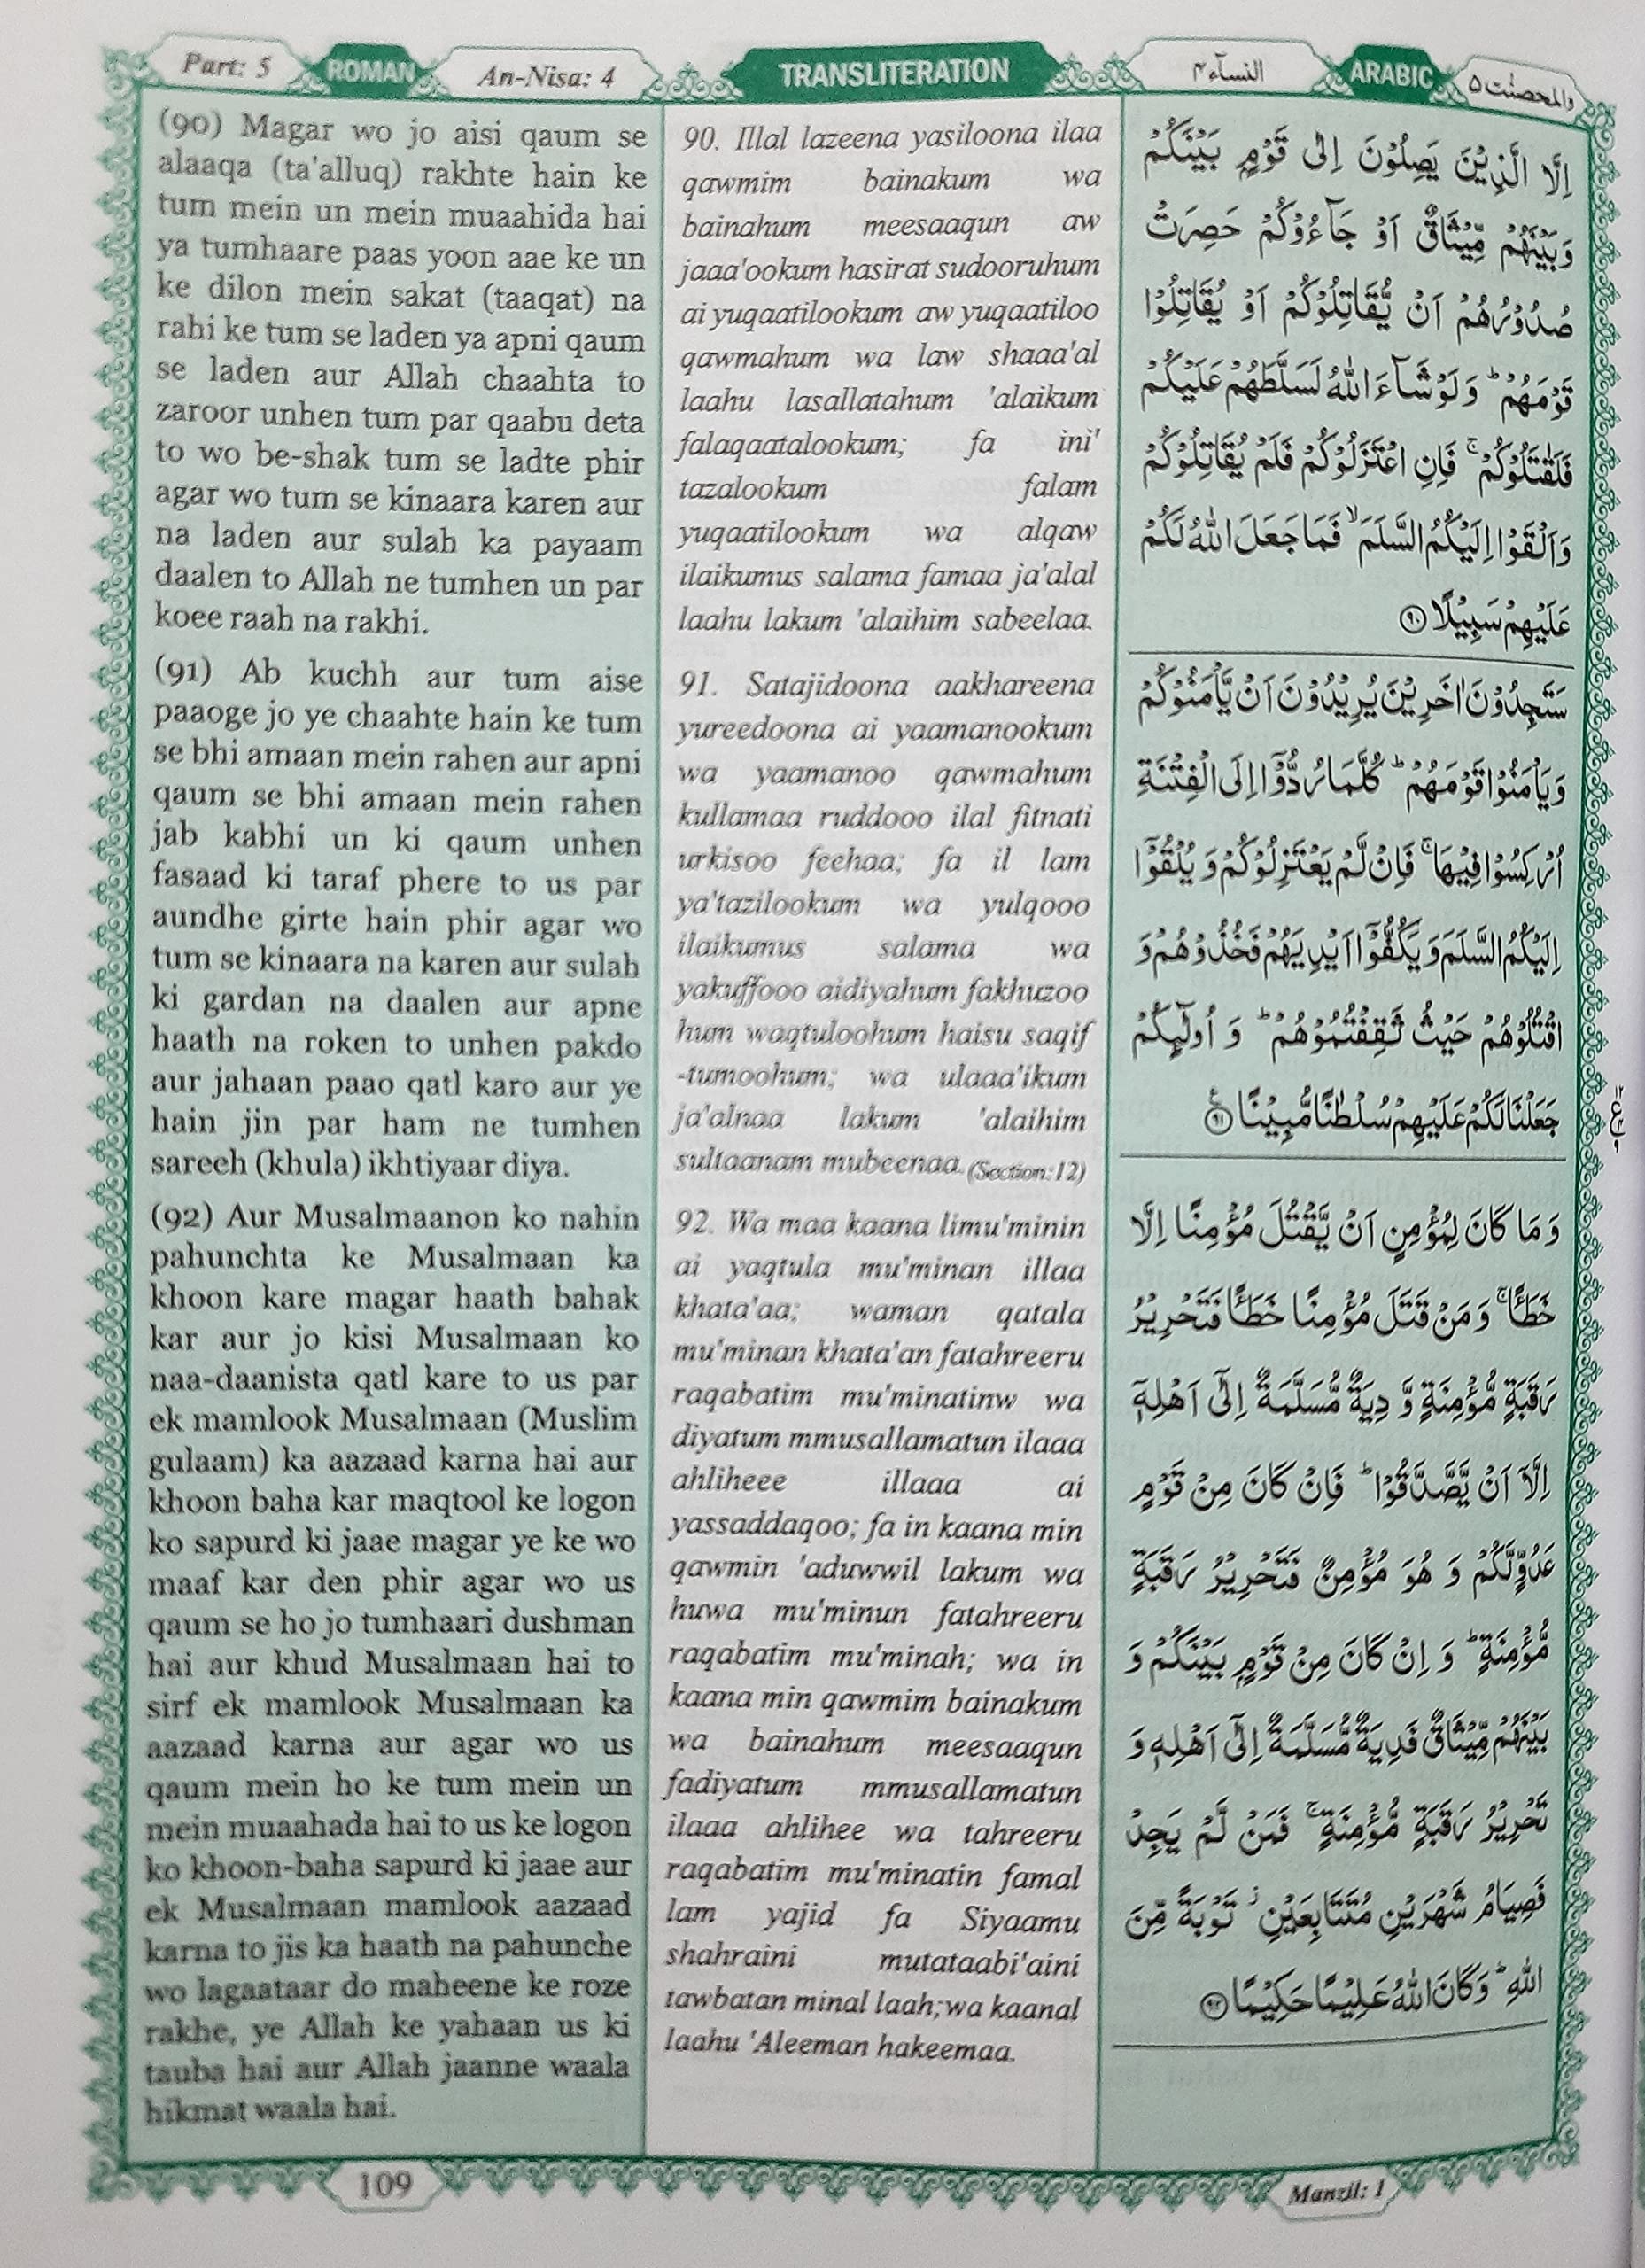 Part: 5
ROMAN
An-Nisa: 4
TRANSLITERATION
النسآء ۴
ARABIC
والمحصنٰت ۵
(90) Magar wo jo aisi qaum se
alaaqa (ta'alluq) rakhte hain ke
tum mein un mein muaahida hai
ya tumhaare paas yoon aae ke un
ke dilon mein sakat (taaqat) na
rahi ke tum se laden ya apni qaum
se laden aur Allah chaahta to
zaroor unhen tum par qaabu deta
to wo be-shak tum se ladte phir
agar wo tum se kinaara karen aur
na laden aur sulah ka payaam
daalen to Allah ne tumhen un par
koee raah na rakhi.
(91) Ab kuchh aur tum aise
paaoge jo ye chaahte hain ke tum
se bhi amaan mein rahen aur apni
qaum se bhi amaan mein rahen
jab kabhi un ki qaum unhen
fasaad ki taraf phere to us par
aundhe girte hain phir agar wo
tum se kinaara na karen aur sulah
ki gardan na daalen aur apne
haath na roken to unhen pakdo
aur jahaan paao qatl karo aur ye
hain jin par ham ne tumhen
sareeh (khula) ikhtiyaar diya.
(92) Aur Musalmaanon ko nahin
pahunchta ke Musalmaan ka
khoon kare magar haath bahak
kar aur jo kisi Musalmaan ko
naa-daanista qatl kare to us par
ek mamlook Musalmaan (Muslim
gulaam) ka aazaad karna hai aur
khoon baha kar maqtool ke logon
ko sapurd ki jaae magar ye ke wo
maaf kar den phir agar wo us
qaum se ho jo tumhaari dushman
hai aur khud Musalmaan hai to
sirf ek mamlook Musalmaan ka
aazaad karna aur agar wo us
qaum mein ho ke tum mein un
mein muaahada hai to us ke logon
ko khoon-baha sapurd ki jaae aur
ek Musalmaan mamlook aazaad
karna to jis ka haath na pahunche
wo lagaataar do maheene ke roze
rakhe, ye Allah ke yahaan us ki
tauba hai aur Allah jaanne waala
hikmat waala hai.
90. Illal lazeena yasiloona ilaa
qawmim bainakum wa
bainahum meesaaqun aw
jaaa'ookum hasirat sudooruhum
ai yuqaatilookum aw yuqaatiloo
qawmahum wa law shaaa'al
laahu lasallatahum 'alaikum
falaqaatalookum; fa ini'
tazalookum falam
yuqaatilookum wa alqaw
ilaikumus salama famaa ja'alal
laahu lakum 'alaihim sabeelaa.
91. Satajidoona aakhareena
yureedoona ai yaamanookum
wa yaamanoo qawmahum
kullamaa ruddooo ilal fitnati
urkisoo feehaa; fa il lam
ya'tazilookum wa yulqooo
ilaikumus salama wa
yakuffooo aidiyahum fakhuzoo
hum waqtuloohum haisu saqif
-tumoohum; wa ulaaa'ikum
ja'alnaa lakum 'alaihim
sultaanam mubeenaa. (Section:12)
92. Wa maa kaana limu'minin
ai yaqtula mu'minan illaa
khata'aa; waman qatala
mu'minan khata'an fatahreeru
raqabatim mu'minatinw wa
diyatum mmusallamatun ilaaa
ahliheee illaaa ai
yassaddaqoo; fa in kaana min
qawmin 'aduwwil lakum wa
huwa mu'minun fatahreeru
raqabatim mu'minah; wa in
kaana min qawmim bainakum
wa bainahum meesaaqun
fadiyatum mmusallamatun
ilaaa ahlihee wa tahreeru
raqabatim mu'minatin famal
lam yajid fa Siyaamu
shahraini mutataabi'aini
tawbatan minal laah;wa kaanal
laahu 'Aleeman hakeemaa.
اِلَّا الَّذِيْنَ يَصِلُوْنَ اِلٰى قَوْمٍۭ بَيْنَكُمْ
وَبَيْنَهُمْ مِّيْثَاقٌ اَوْ جَآءُوْكُمْ حَصِرَتْ
صُدُوْرُهُمْ اَنْ يُّقَاتِلُوْكُمْ اَوْ يُقَاتِلُوْا
قَوْمَهُمْ ؕ وَلَوْ شَآءَ اللّٰهُ لَسَلَّطَهُمْ عَلَيْكُمْ
فَلَقٰتَلُوْكُمْ ۚ فَاِنِ اعْتَزَلُوْكُمْ فَلَمْ يُقَاتِلُوْكُمْ
وَاَلْقَوْا اِلَيْكُمُ السَّلَمَ ۙ فَمَا جَعَلَ اللّٰهُ لَكُمْ
عَلَيْهِمْ سَبِيْلًا ۹۰
سَتَجِدُوْنَ اٰخَرِيْنَ يُرِيْدُوْنَ اَنْ يَّاْمَنُوْكُمْ
وَيَاْمَنُوْا قَوْمَهُمْ ؕ كُلَّمَا رُدُّوْۤا اِلَى الْفِتْنَةِ
اُرْكِسُوْا فِيْهَا ۚ فَاِنْ لَّمْ يَعْتَزِلُوْكُمْ وَ يُلْقُوْۤا
اِلَيْكُمُ السَّلَمَ وَ يَكُفُّوْۤا اَيْدِيَهُمْ فَخُذُوْهُمْ وَ
اقْتُلُوْهُمْ حَيْثُ ثَقِفْتُمُوْهُمْ ؕ وَ اُولٰٓئِكُمْ
جَعَلْنَا لَكُمْ عَلَيْهِمْ سُلْطٰنًا مُّبِيْنًا ۹۱
وَ مَا كَانَ لِمُؤْمِنٍ اَنْ يَّقْتُلَ مُؤْمِنًا اِلَّا
خَطَـًٔا ۚ وَ مَنْ قَتَلَ مُؤْمِنًا خَطَـًٔا فَتَحْرِيْرُ
رَقَبَةٍ مُّؤْمِنَةٍ وَّ دِيَةٌ مُّسَلَّمَةٌ اِلٰۤى اَهْلِهٖۤ
اِلَّاۤ اَنْ يَّصَّدَّقُوْا ؕ فَاِنْ كَانَ مِنْ قَوْمٍ
عَدُوٍّ لَّكُمْ وَ هُوَ مُؤْمِنٌ فَتَحْرِيْرُ رَقَبَةٍ
مُّؤْمِنَةٍ ؕ وَ اِنْ كَانَ مِنْ قَوْمٍۭ بَيْنَكُمْ وَ
بَيْنَهُمْ مِّيْثَاقٌ فَدِيَةٌ مُّسَلَّمَةٌ اِلٰۤى اَهْلِهٖ وَ
تَحْرِيْرُ رَقَبَةٍ مُّؤْمِنَةٍ ۚ فَمَنْ لَّمْ يَجِدْ
فَصِيَامُ شَهْرَيْنِ مُتَتَابِعَيْنِ ؗ تَوْبَةً مِّنَ
اللّٰهِ ؕ وَكَانَ اللّٰهُ عَلِيْمًا حَكِيْمًا ۹۲
109
Manzil: 1